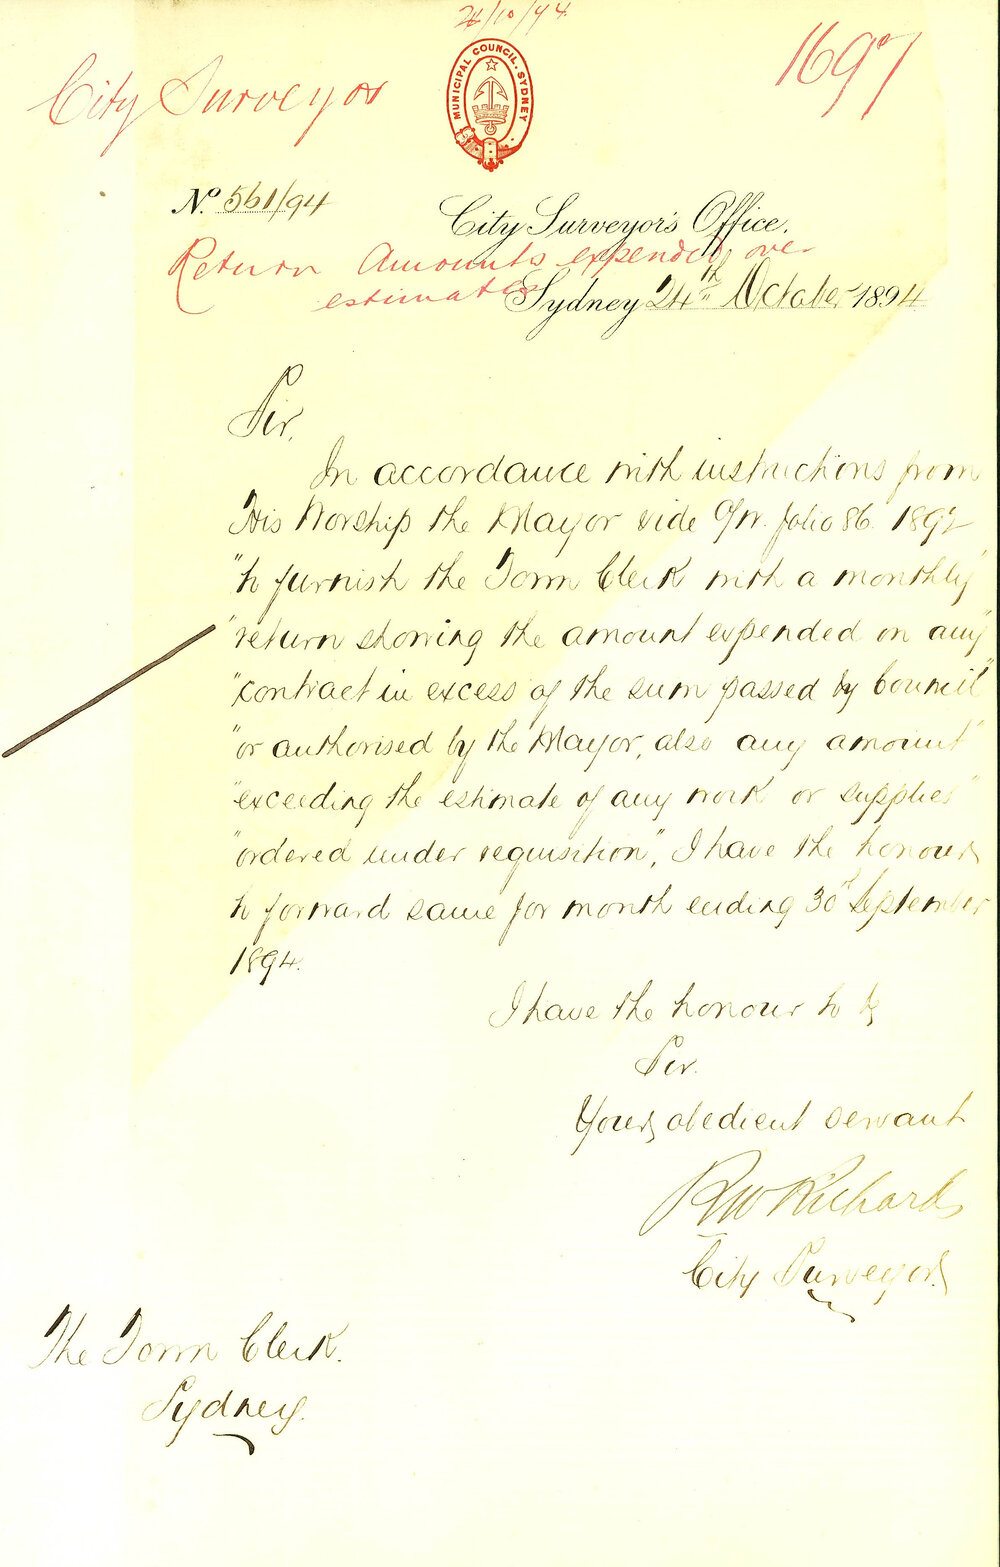 24/10/94
City Surveyor
1697
MUNICIPAL COUNCIL. SYDNEY
No. 561/94
City Surveyor's Office.
Return Amounts expended over
estimates
Sydney 24th October 1894
Sir,
In accordance with instructions from
His Worship the Mayor vide folio 86. 1892
"to furnish the Town Clerk with a monthly"
"return showing the amount expended on any"
"contract in excess of the sum passed by Council"
"or authorised by the Mayor, also any amount"
"exceeding the estimate of any work or supplies"
"ordered under requisition", I have the honour
to forward same for month ending 30th September
1894.
I have the honour to be
Sir.
Your obedient servant
RW Richards
City Surveyor.
The Town Clerk.
Sydney.